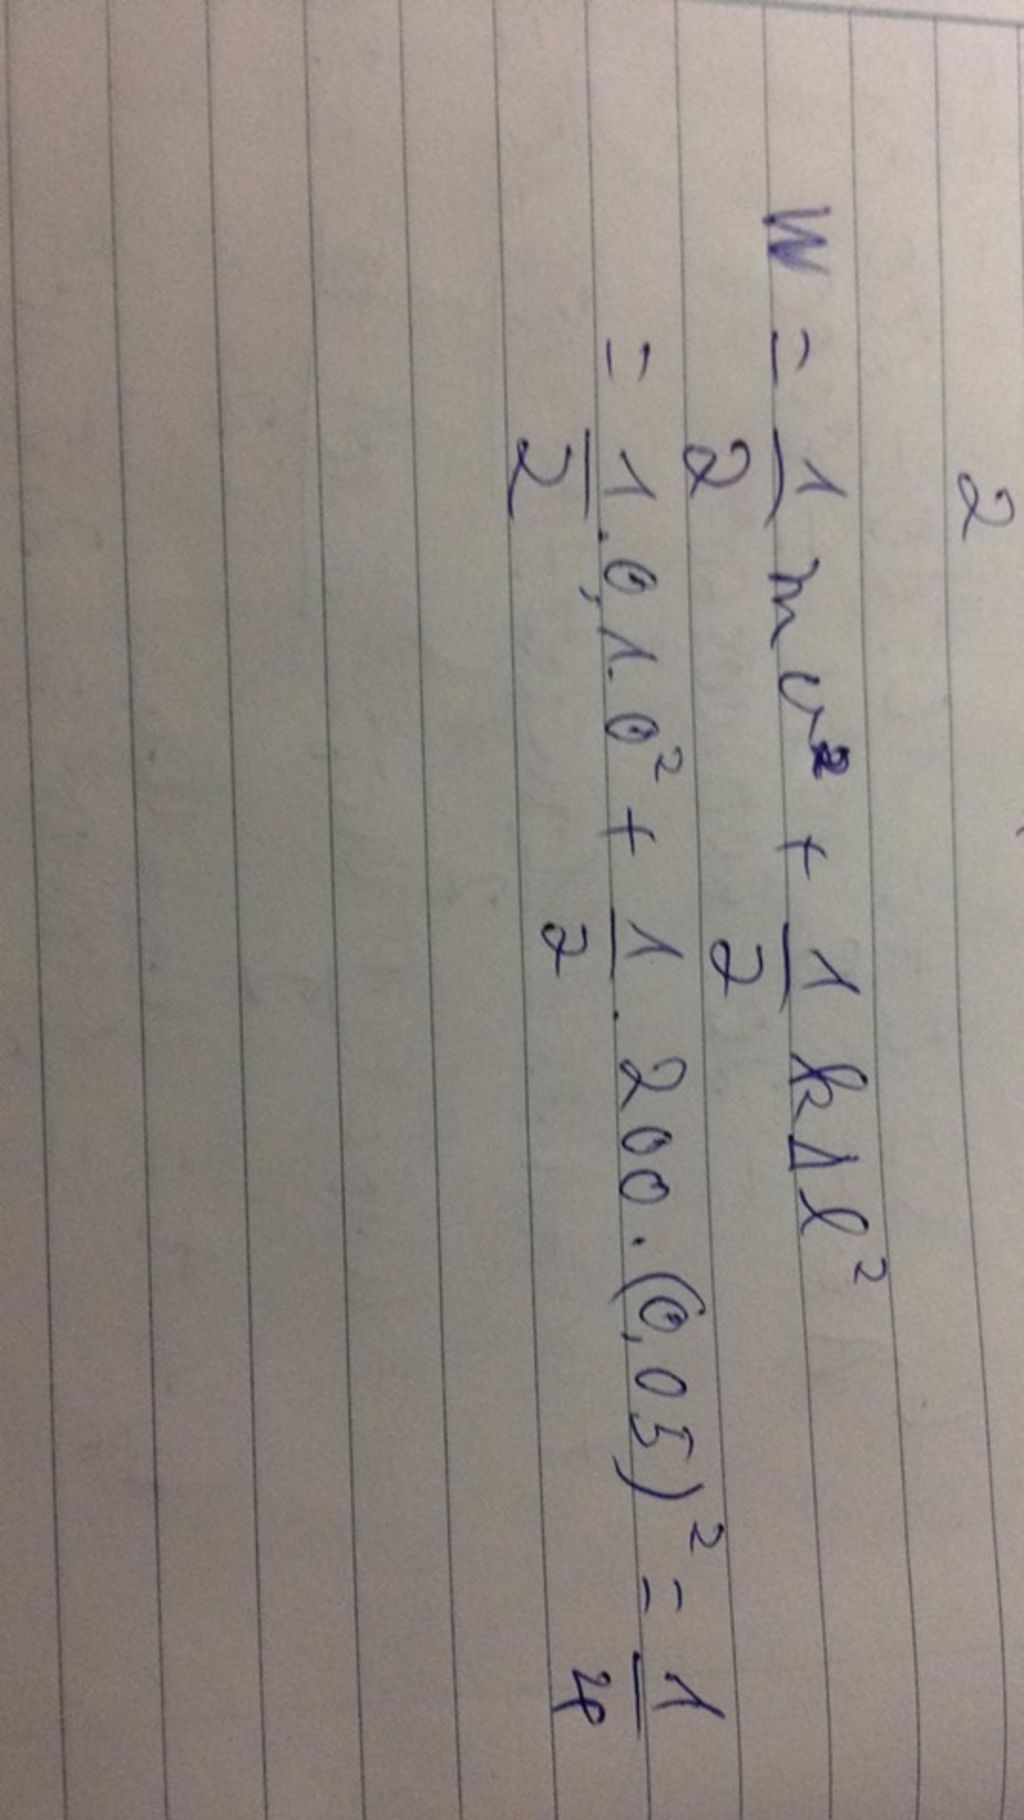 2
W = 1/2 mv² + 1/2 kΔl²
= 1/2 . 0,1 . 0² + 1/2 . 200 . (0,05)² = 1/4